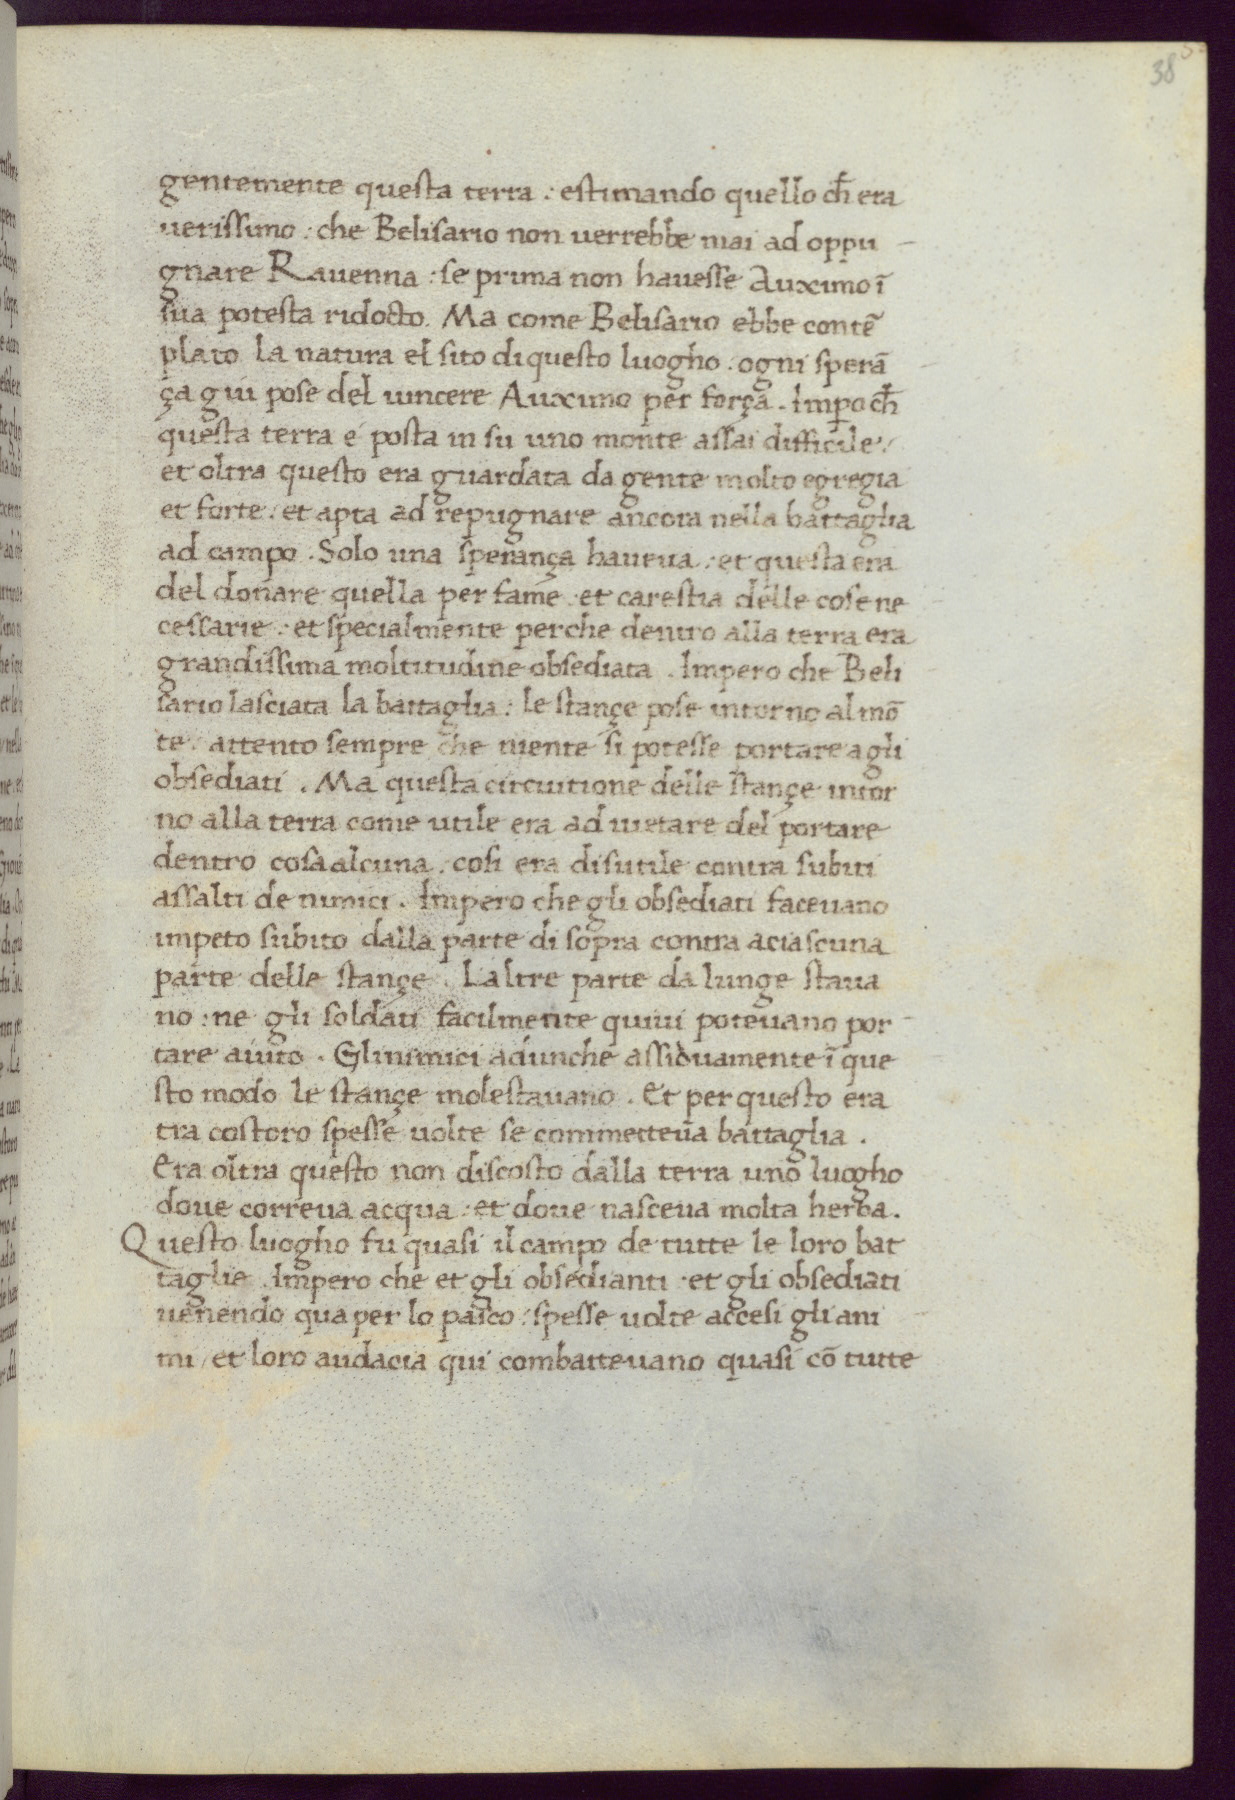 38
gentemente questa terra : estimando quello ch̄ era
uerissimo : che Belisario non uerrebbe mai ad oppu
gnare Rauenna : se prima non hauesse Auximo ī
sua potesta ridocto. Ma come Belisario ebbe contē
plato la natura el sito di questo luogho . ogni sperā
ça giu pose del uincere Auximo per força . Imꝑo ch̄
questa terra e posta in su uno monte assai difficile :
et oltra questo era guardata da gente molto egregia
et forte : et apta ad repugnare ancora nella battaglia
ad campo . Solo una sperança haueua : et questa era
del domare quella per fame : et carestia delle cose ne
cessarie : et specialmente perche dentro alla terra era
grandissima moltitudine obsediata . Impero che Beli
sario lasciata la battaglia : le stançe pose intorno al mō
te : attento sempre che niente si potesse portare a gli
obsediati . Ma questa circuitione delle stançe intor
no alla terra come utile era ad uietare del portare
dentro cosa alcuna . cosi era disutile contra subiti
assalti de nimici . Impero che gli obsediati faceuano
impeto subito dalla parte di sopra contra aciascuna
parte delle stançe . Laltre parte da lunge staua
no : ne gli soldati facilmente quiui poteuano por
tare aiuto . Glinimici adunche assiduamente ī que
sto modo le stançe molestauano . Et per questo era
tra costoro spesse uolte se commetteua battaglia .
Era oltra questo non discosto dalla terra uno luogho
doue correua acqua : et doue nasceua molta herba .
Questo luogho fu quasi il campo de tutte le loro bat
taglie . Impero che et gli obsedianti : et gli obsediati
uenendo qua per lo pasco : spesse uolte accesi gli ani
mi / et loro audacia qui combatteuano quasi cō tutte